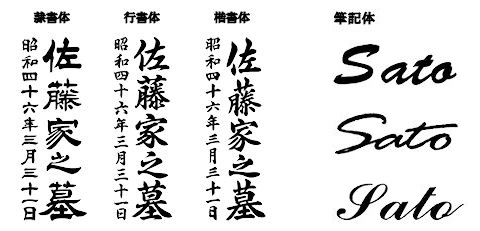 隷書体
佐藤家之墓
昭和四十六年三月三十一日
行書体
佐藤家之墓
昭和四十六年三月三十一日
楷書体
佐藤家之墓
昭和四十六年三月三十一日
筆記体
Sato
Sato
Sato